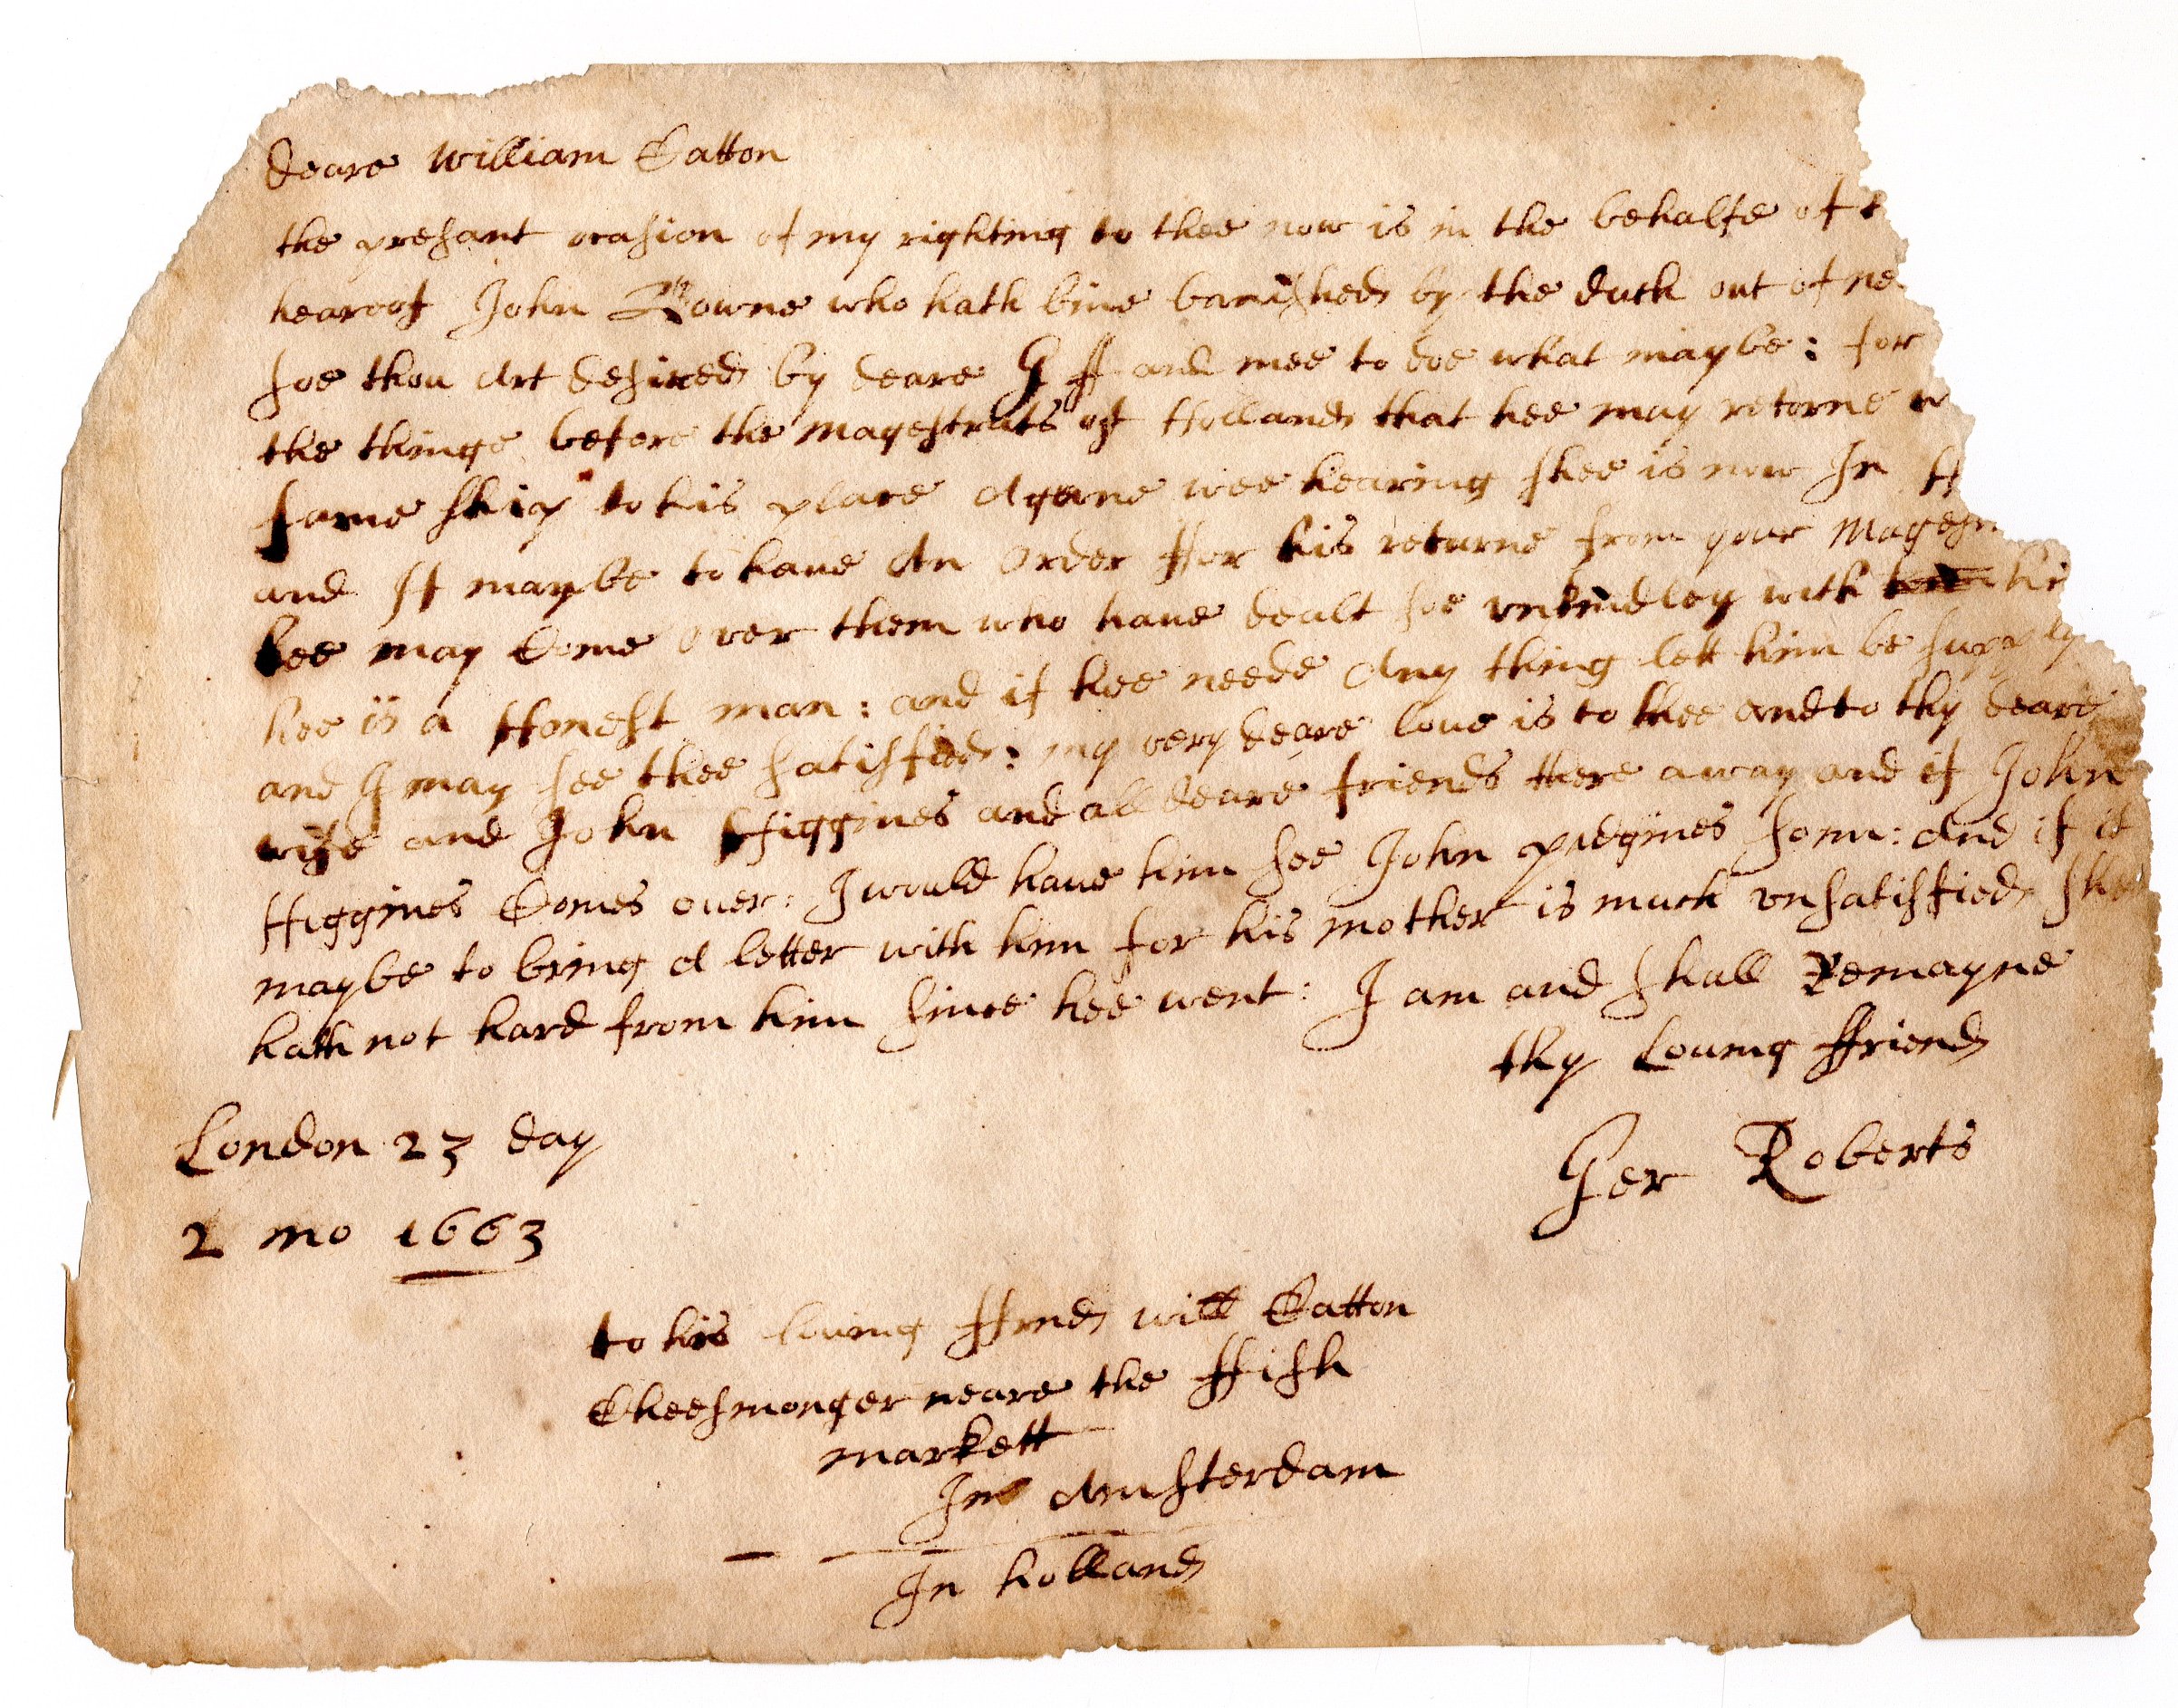 deare William Catton
the presant ocasion of my righting to thee now is in the behalfe of
hearof John Bowne who hath bine banished by the duch out of ne
soe thou Art desired by deare G ff and mee to doe what maybe: for
the things before the magestrats of Holland that hee may retorne w
same ship to his place Agane wee hearing shee is now In H
and If maybe to have An Order ffor his returne from your Magestr
hee may Come over them who have dealt soe unkindley with hi
hee is a Honest man: and if hee neede Any thing lett him be supply
and I may see thee satisfied: my very deare love is to thee and to thy deare
wife and John Higgines and all deare friends there away and if John
Higgines Comes over: I would have him see John pidgines sonn: And if it
maybe to bring A letter with him for his mother is much unsatisfied shee
hath not hard from him since hee went: I am and shall Remayne
thy Loving ffriend
Ger Roberts
London 23 day
2 mo 1663
to his loving ffrnd will Catton
Cheesmonger neare the ffish
markett
In Amsterdam
In holland